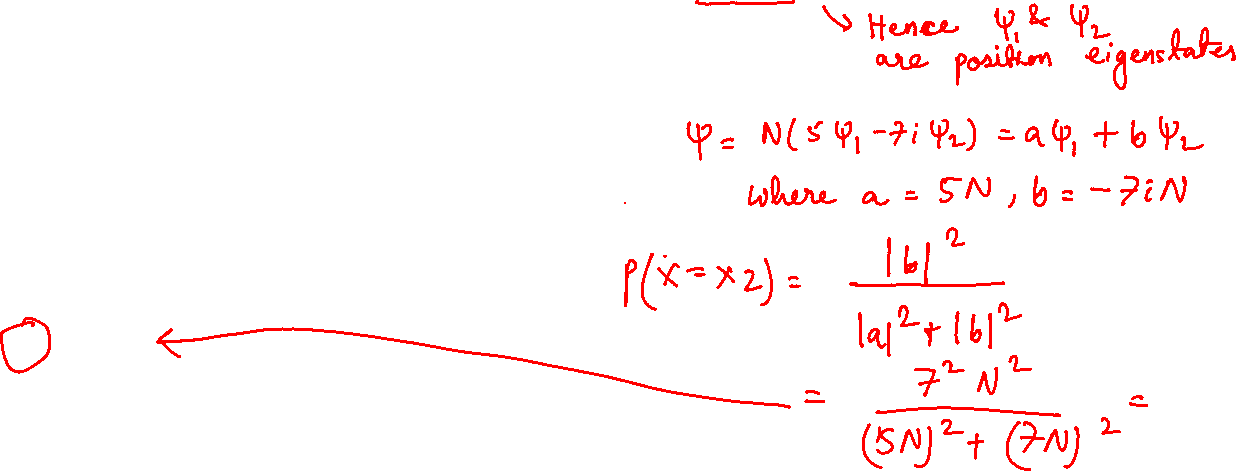 Hence ψ₁ & ψ₂
are position eigenstates
ψ = N(5ψ₁ - 7iψ₂) = aψ₁ + bψ₂
where a = 5N, b = -7iN
P(x = x2) = |b|² / (|a|² + |b|²)
= 7²N² / ((5N)² + (7N)²) =